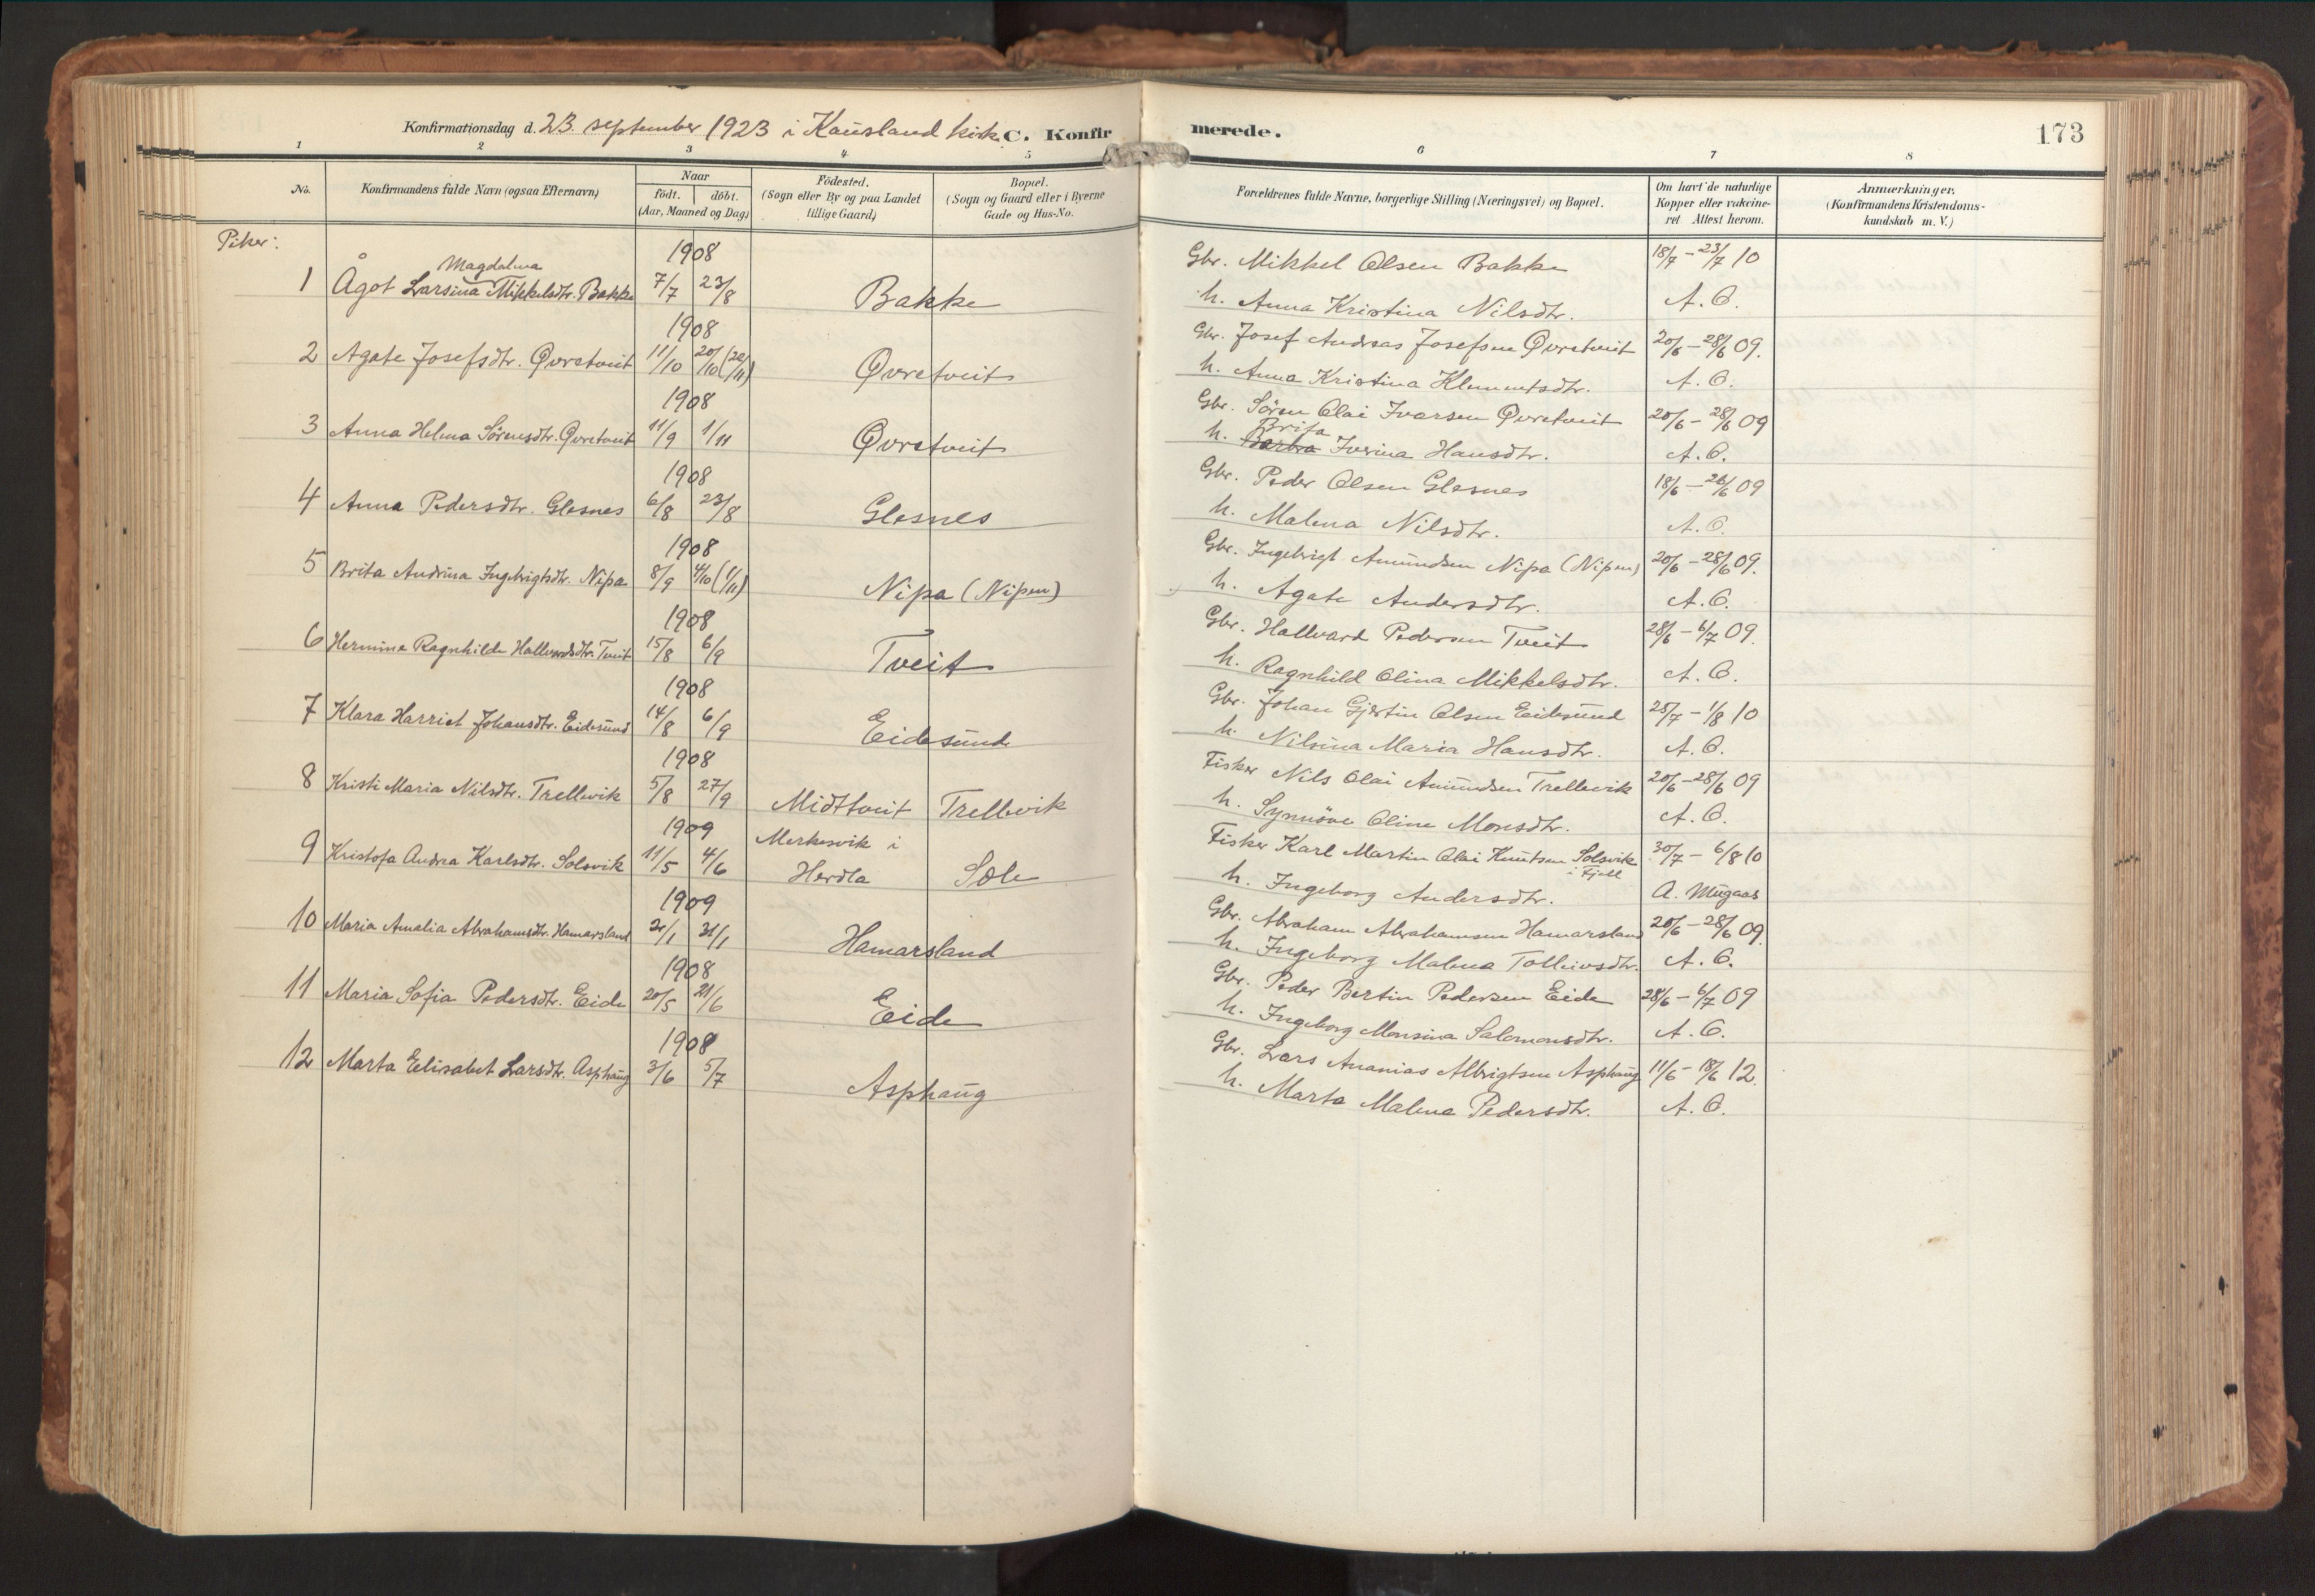 Konfirmationsdag d. 23. september 1923 i Kausland kirke C. Konfirmerede. 173
1 2 3 4 5 6 7 8
No. Konfirmandens fulde Navn (ogsaa Efternavn) Naar født. døbt. (Aar, Maaned og Dag) Fødested. (Sogn eller By og paa Landet tillige Gaard) Bopæl. (Sogn og Gaard eller i Byerne Gade og Hus-No. Forældrenes fulde Navne, borgerlige Stilling (Næringsvei) og Bopæl. Om havt de naturlige Kopper eller vakcineret Attest herom. Anmærkninger. (Konfirmandens Kristendomskundskab m. V.)
Piker:
1908
Magdalena
1 Ågot Larsina Mikkelsdtr. Bakke 7/7 23/8 Bakke Gbr. Mikkel Olsen Bakke 18/7 - 23/7 10
h. Anna Kristina Nilsdtr. A. O.
1908
2 Agate Josefsdtr. Øvretveit 11/10 20/10 (22/11) Øvretveit Gbr. Josef Andreas Josefsen Øvretveit 20/6 - 28/6 09.
h. Anna Kristina Klementsdtr. A. O.
1908
3 Anna Helena Sørensdtr. Øvretveit 11/9 1/11 Øvretveit Gbr. Søren Olai Ivarsen Øvretveit 20/6 - 28/6 09
Brita
h. Barbra Iverina Hansdtr. A. O.
1908
4 Anna Pedersdtr. Glesnes 6/8 23/8 Glesnes Gbr. Peder Olsen Glesnes 18/6 - 26/6 09
h. Malena Nilsdtr. A. O.
1908
5 Brita Andrina Ingebrigtsdtr. Nipa 8/9 4/10 (1/11) Nipa (Nipen) Gbr. Ingebrigt Amundsen Nipa (Nipen) 20/6 - 28/6 09.
h. Agate Andersdtr. A. O.
1908
6 Hermine Ragnhilde Hallvardsdtr. Tveit 15/8 6/9 Tveit Gbr. Hallvard Pedersen Tveit 28/6 - 6/7 09.
h. Ragnhild Olina Mikkelsdtr. A. O.
1908
7 Klara Harriet Johansdtr. Eidesund 14/8 6/9 Eidesund Gbr. Johan Gjertin Olsen Eidesund 25/7 - 1/8 10
h. Nilsina Maria Hansdtr. A. O.
1908
8 Kristi Maria Nilsdtr. Trellevik 5/8 27/9 Midttveit Trellevik Fisker Nils Olai Amundsen Trellevik 20/6 - 28/6 09
h. Synnøve Oline Monsdtr. A. O.
1909
9 Kristofa Andrea Karlsdtr. Solsvik 11/5 4/6 Merkesvik i Herdla Sole Fisker Karl Martin Olai Knutsen Solsvik i Fjell 30/7 - 6/8 10
h. Ingeborg Andersdtr. A. Mugaas
1909
10 Maria Amalia Abrahamsdtr. Hamarsland 21/1 31/1 Hamarsland Gbr. Abraham Abrahamsen Hamarsland 20/6 - 28/6 09.
h. Ingeborg Malena Tolleivsdtr. A. O.
1908
11 Maria Sofia Pedersdtr. Eide 20/5 21/6 Eide Gbr. Peder Bertin Pedersen Eide 28/6 - 6/7 09
h. Ingeborg Monsina Salomonsdtr. A. O.
1908
12 Marta Elisabet Larsdtr. Asphaug 3/6 5/7 Asphaug Gbr. Lars Ananias Albrigtsen Asphaug 11/6 - 18/6 12.
h. Marta Malena Pedersdtr. A. O.